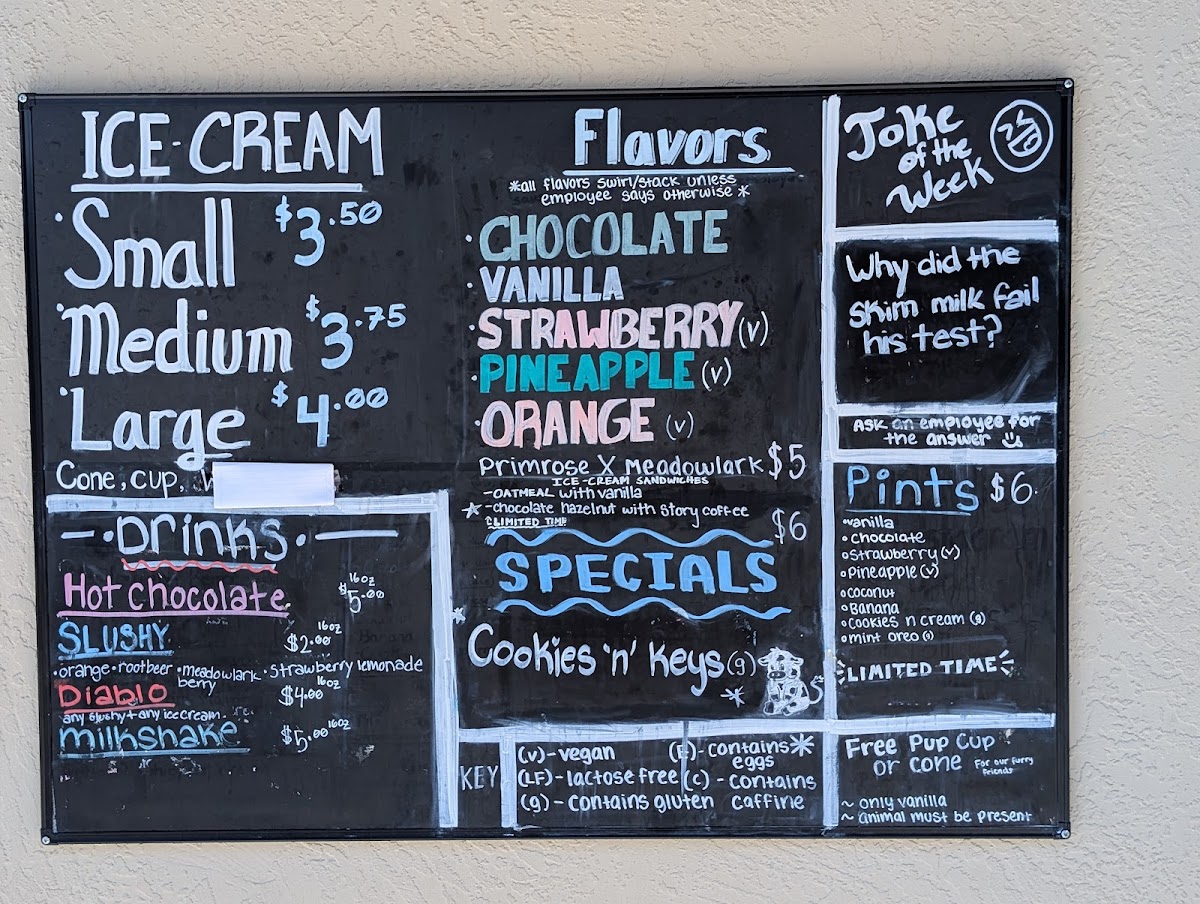 ICE-CREAM
• Small $3.50
• Medium $3.75
• Large $4.00
Cone, cup,
— • Drinks • —
Hot chocolate 16oz $5.00
SLUSHY $2.00 16oz
• orange • rootbeer • meadowlark berry • strawberry lemonade
Diablo $4.00 16oz
any slushy + any ice cream
milkshake $5.00 16oz
Flavors
*all flavors swirl/stack unless
employee says otherwise*
• CHOCOLATE
• VANILLA
• STRAWBERRY (v)
• PINEAPPLE (v)
• ORANGE (v)
Primrose X Meadowlark $5
ICE-CREAM SANDWICHES
- OATMEAL with vanilla
- chocolate hazelnut with story coffee
LIMITED TIME $6
SPECIALS
Cookies 'n' Keys (g)
KEY
(v) - vegan
(LF) - lactose free
(g) - contains gluten
(E) - contains eggs
(c) - contains caffine
Joke
of the
Week
Why did the
skim milk fail
his test?
Ask an employee for
the answer
Pints $6
• vanilla
• chocolate
• strawberry (v)
• pineapple (v)
• coconut
• Banana
• cookies n cream (g)
• mint oreo
LIMITED TIME
Free Pup Cup
or cone For our furry friends
~ only vanilla
~ animal must be present